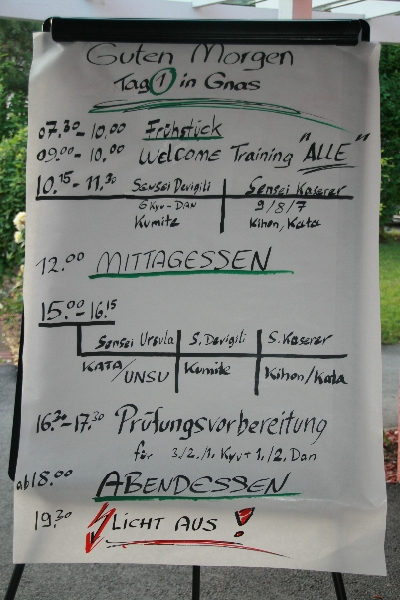 Guten Morgen
Tag 1 in Gnas
07.30-10.00 Frühstück
09.00-10.00 Welcome Training "ALLE"
10.15-11.30 Sensei Devigili Sensei Kaserer
6 Kyu-DAN 9/8/7
Kumite Kihon, Kata
12.00 MITTAGESSEN
15.00-16.15
Sensei Ursula S. Devigili S. Kaserer
KATA/UNSU Kumite Kihon/Kata
16.30-17.30 Prüfungsvorbereitung
für 3./2./1. Kyu + 1./2. Dan
ab 18.00 ABENDESSEN
19.30 LICHT AUS!